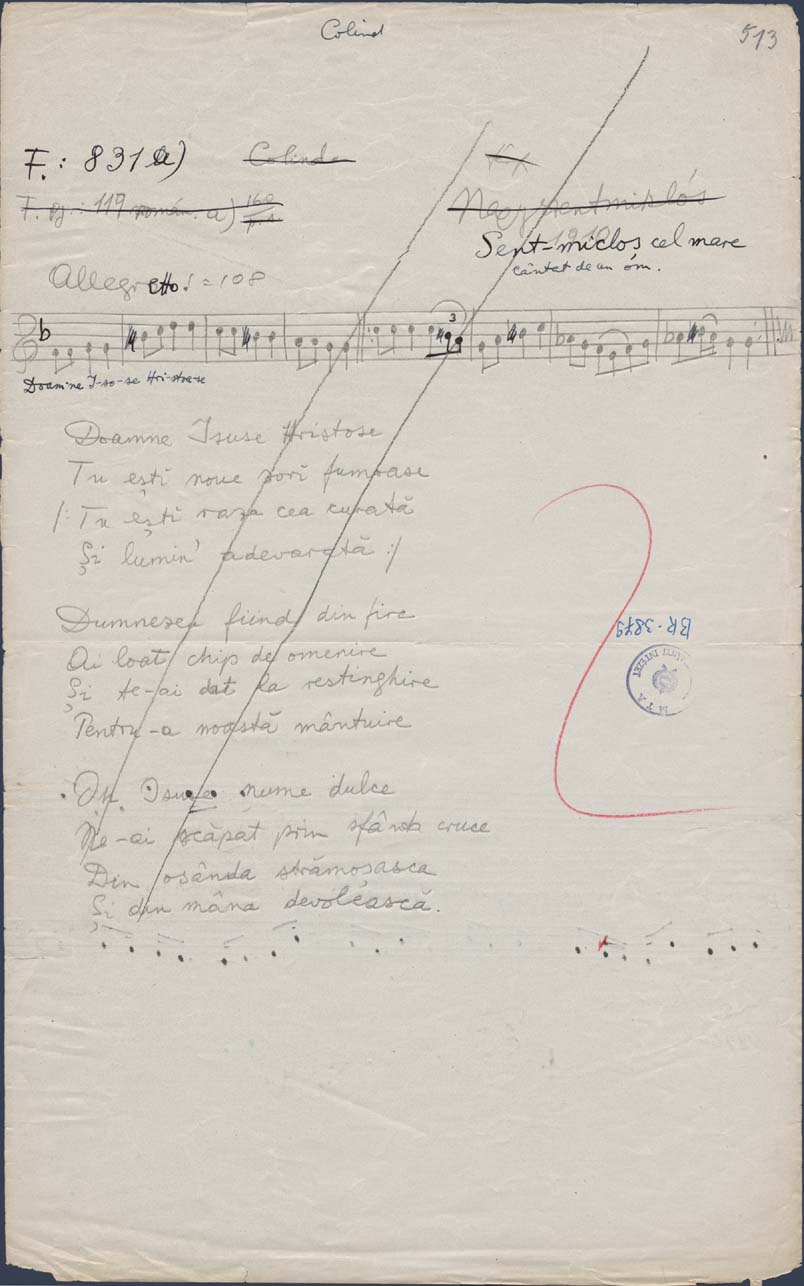 Colind
513
F.: 831 a)
Colinda
F. gj.: 119 román. a) 160
Nagyszentmiklós
1910
Sent-miclos cel mare
cântat de un om.
Allegretto. = 108
3
Doamne I-so-se Hri-stoa-se
Doamne Isuse Hristose
Tu ești noue zori fumoase
/: Tu ești raza cea curată
Și lumin' adevarată :/
Dumnezeu fiind din fire
Ai loat chip de omenire
Și te-ai dat la restinghire
Pentru-a noastă mântuire
Isuse nume dulce
Ne-ai scăpat prin sfânta cruce
Din osânda strămosasca
Și din mâna devolească.
BR-3879
MTA